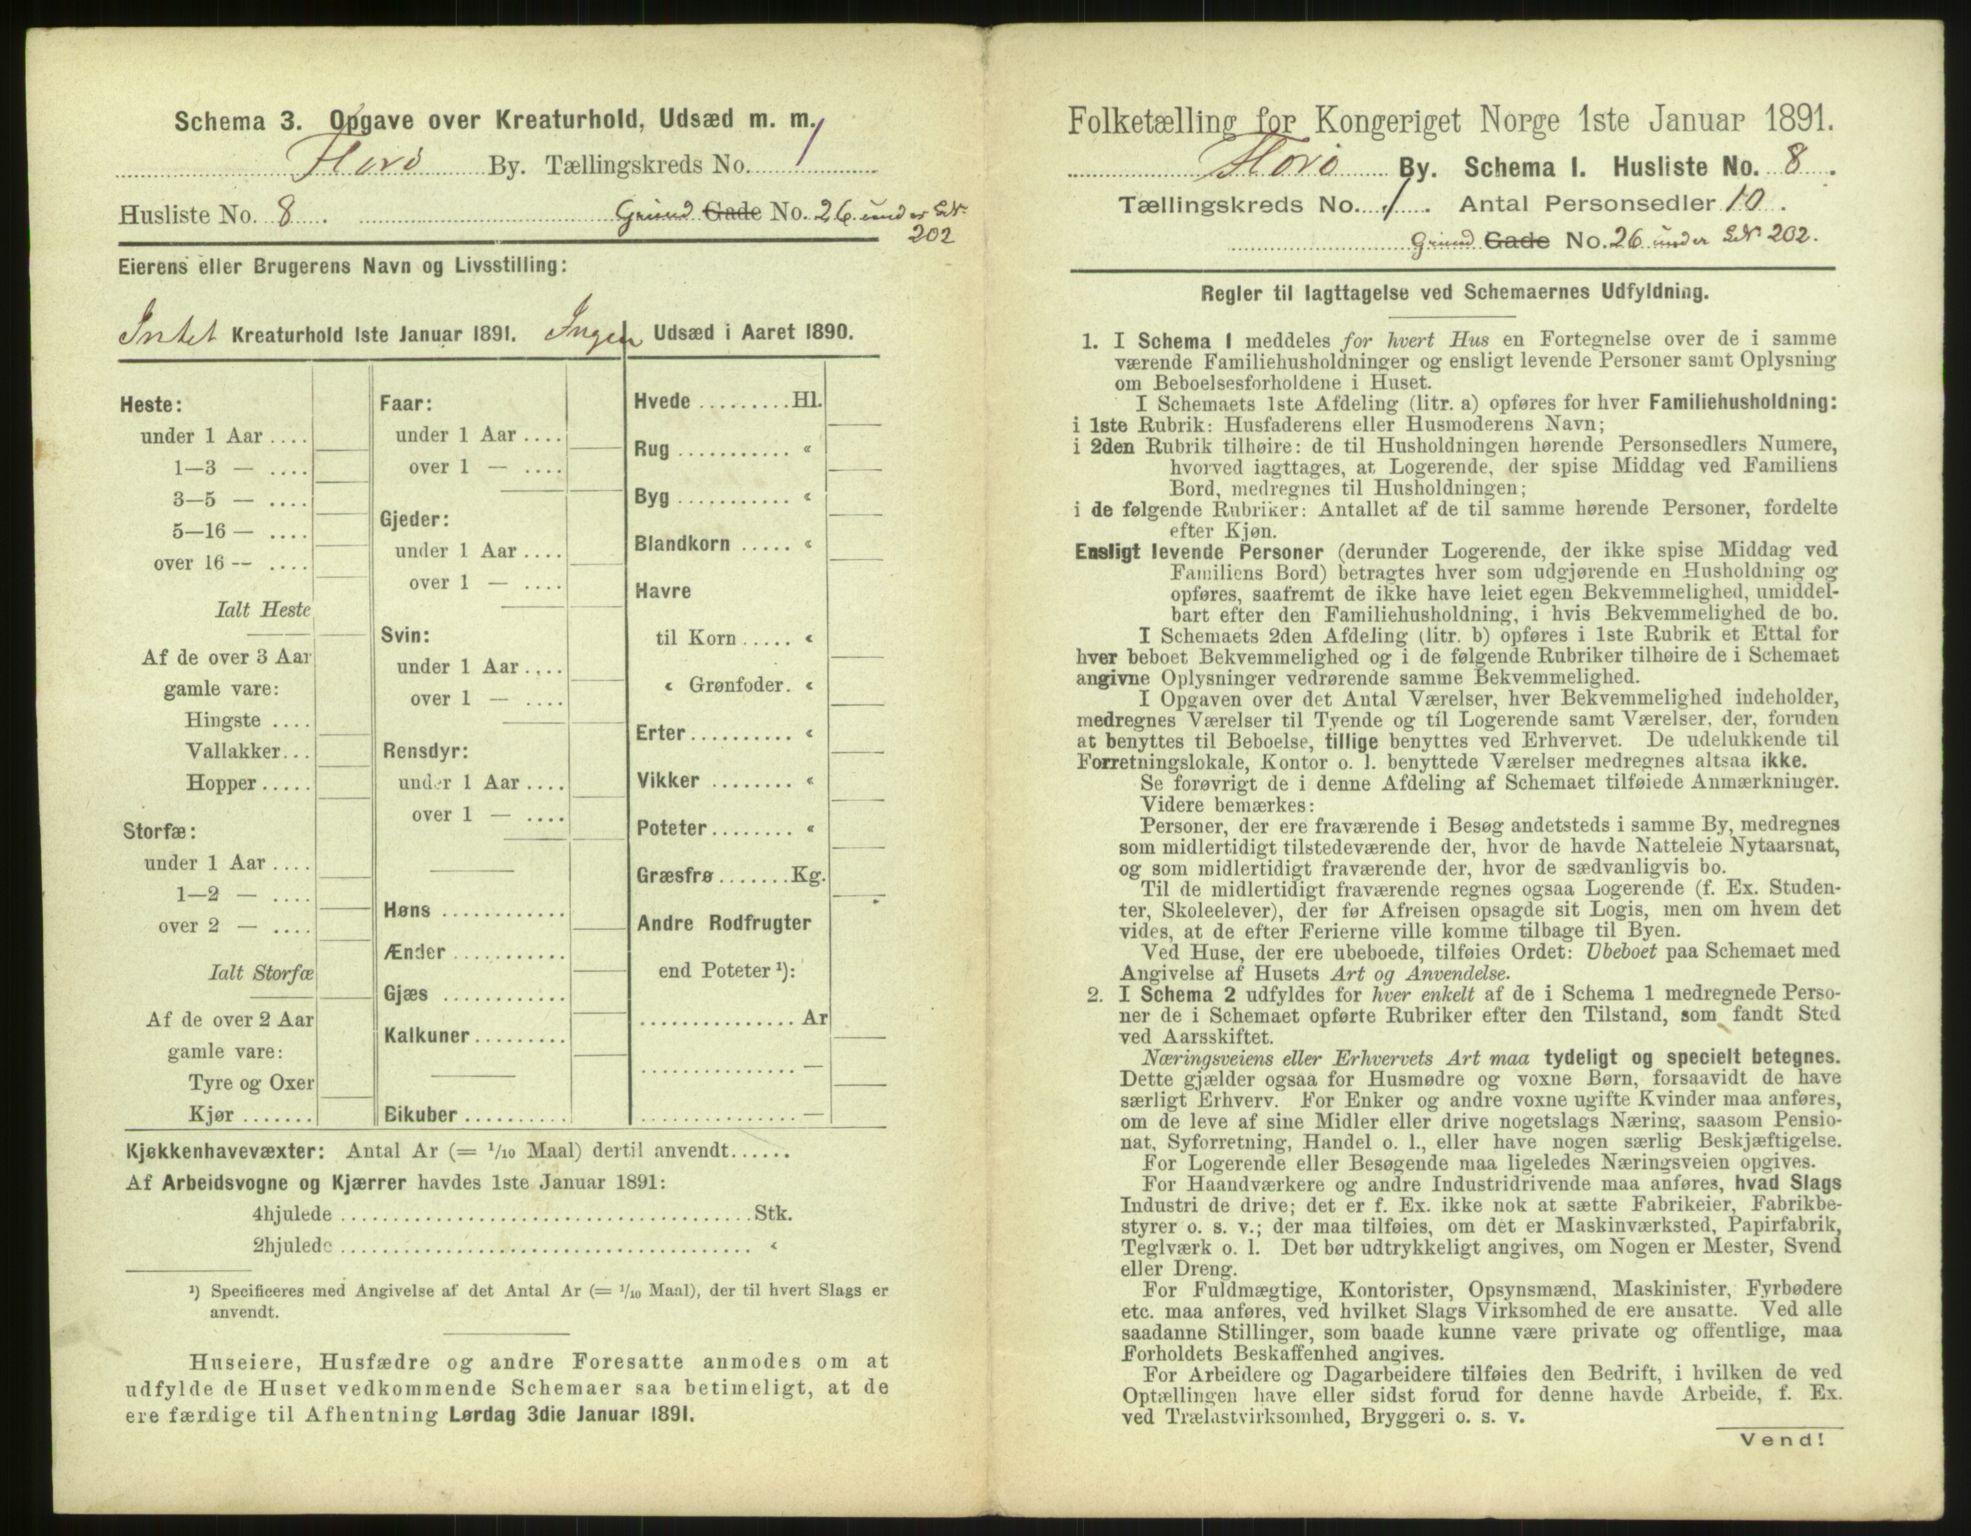 Schema 3. Opgave over Kreaturhold, Udsæd m. m.
Florö By. Tællingskreds No. 1
Husliste No. 8. Grund Gade No. 26 under LN.
202
Eierens eller Brugerens Navn og Livsstilling:
Intet Kreaturhold 1ste Januar 1891.
Heste:
under 1 Aar ....
1—3 — ....
3—5 — ....
5—16 — ....
over 16 -- ....
Ialt Heste
Af de over 3 Aar
gamle vare:
Hingste ....
Vallakker...
Hopper.....
Storfæ:
under 1 Aar ....
1—2 — ....
over 2 — ....
Ialt Storfæ
Af de over 2 Aar
gamle vare:
Tyre og Oxer
Kjør.......
Faar:
under 1 Aar ....
over 1 — ....
Gjeder:
under 1 Aar ....
over 1 — ....
Svin:
under 1 Aar ....
over 1 — ....
Rensdyr:
under 1 Aar ....
over 1 — ....
Høns ............
Ænder ...........
Gjæs ............
Kalkuner.........
Bikuber ..........
Ingen Udsæd i Aaret 1890.
Hvede .........Hl.
Rug ........... «
Byg ........... «
Blandkorn ..... «
Havre
til Korn ..... «
« Grønfoder. «
Erter.......... «
Vikker ........ «
Poteter........ «
Græsfrø.......Kg.
Andre Rodfrugter
end Poteter ¹):
............... Ar
............... —
............... —
Kjøkkenhavevæxter: Antal Ar (= 1/10 Maal) dertil anvendt......
Af Arbeidsvogne og Kjærrer havdes 1ste Januar 1891:
4hjulede ....................................Stk.
2hjulede .................................... «
¹) Specificeres med Angivelse af det Antal Ar (= 1/10 Maal), der til hvert Slags er
anvendt.
Huseiere, Husfædre og andre Foresatte anmodes om at
udfylde de Huset vedkommende Schemaer saa betimeligt, at de
ere færdige til Afhentning Lørdag 3die Januar 1891.
Folketælling for Kongeriget Norge 1ste Januar 1891.
Florö By. Schema I. Husliste No. 8.
Tællingskreds No. 1. Antal Personsedler 10.
Grund Gade No. 26 under LN. 202.
Regler til Iagttagelse ved Schemaernes Udfyldning.
1. I Schema 1 meddeles for hvert Hus en Fortegnelse over de i samme
værende Familiehusholdninger og ensligt levende Personer samt Oplysning
om Beboelsesforholdene i Huset.
I Schemaets 1ste Afdeling (litr. a) opføres for hver Familiehusholdning:
i 1ste Rubrik: Husfaderens eller Husmoderens Navn;
i 2den Rubrik tilhøire: de til Husholdningen hørende Personsedlers Numere,
hvorved iagttages, at Logerende, der spise Middag ved Familiens
Bord, medregnes til Husholdningen;
i de følgende Rubriker: Antallet af de til samme hørende Personer, fordelte
efter Kjøn.
Ensligt levende Personer (derunder Logerende, der ikke spise Middag ved
Familiens Bord) betragtes hver som udgjørende en Husholdning og
opføres, saafremt de ikke have leiet egen Bekvemmelighed, umiddel-
bart efter den Familiehusholdning, i hvis Bekvemmelighed de bo.
I Schemaets 2den Afdeling (litr. b) opføres i 1ste Rubrik et Ettal for
hver beboet Bekvemmelighed og i de følgende Rubriker tilhøire de i Schemaet
angivne Oplysninger vedrørende samme Bekvemmelighed.
I Opgaven over det Antal Værelser, hver Bekvemmelighed indeholder,
medregnes Værelser til Tyende og til Logerende samt Værelser, der, foruden
at benyttes til Beboelse, tillige benyttes ved Erhvervet. De udelukkende til
Forretningslokale, Kontor o. l. benyttede Værelser medregnes altsaa ikke.
Se forøvrigt de i denne Afdeling af Schemaet tilføiede Anmærkninger.
Videre bemærkes:
Personer, der ere fraværende i Besøg andetsteds i samme By, medregnes
som midlertidigt tilstedeværende der, hvor de havde Natteleie Nytaarsnat,
og som midlertidigt fraværende der, hvor de sædvanligvis bo.
Til de midlertidigt fraværende regnes ogsaa Logerende (f. Ex. Studen-
ter, Skoleelever), der før Afreisen opsagde sit Logis, men om hvem det
vides, at de efter Ferierne ville komme tilbage til Byen.
Ved Huse, der ere ubeboede, tilføies Ordet: Ubeboet paa Schemaet med
Angivelse af Husets Art og Anvendelse.
2. I Schema 2 udfyldes for hver enkelt af de i Schema 1 medregnede Perso-
ner de i Schemaet opførte Rubriker efter den Tilstand, som fandt Sted
ved Aarsskiftet.
Næringsveiens eller Erhvervets Art maa tydeligt og specielt betegnes.
Dette gjælder ogsaa for Husmødre og voxne Børn, forsaavidt de have
særligt Erhverv. For Enker og andre voxne ugifte Kvinder maa anføres,
om de leve af sine Midler eller drive nogetslags Næring, saasom Pensio-
nat, Syforretning, Handel o. l., eller have nogen særlig Beskjæftigelse.
For Logerende eller Besøgende maa ligeledes Næringsveien opgives.
For Haandværkere og andre Industridrivende maa anføres, hvad Slags
Industri de drive; det er f. Ex. ikke nok at sætte Fabrikeier, Fabrikbe-
styrer o. s. v.; der maa tilføies, om det er Maskinværksted, Papirfabrik,
Teglværk o. l. Det bør udtrykkeligt angives, om Nogen er Mester, Svend
eller Dreng.
For Fuldmægtige, Kontorister, Opsynsmænd, Maskinister, Fyrbødere
etc. maa anføres, ved hvilket Slags Virksomhed de ere ansatte. Ved alle
saadanne Stillinger, som baade kunne være private og offentlige, maa
Forholdets Beskaffenhed angives.
For Arbeidere og Dagarbeidere tilføies den Bedrift, i hvilken de ved
Optællingen have eller sidst forud for denne havde Arbeide, f. Ex.
ved Trælastvirksomhed, Bryggeri o. s. v.
Vend!